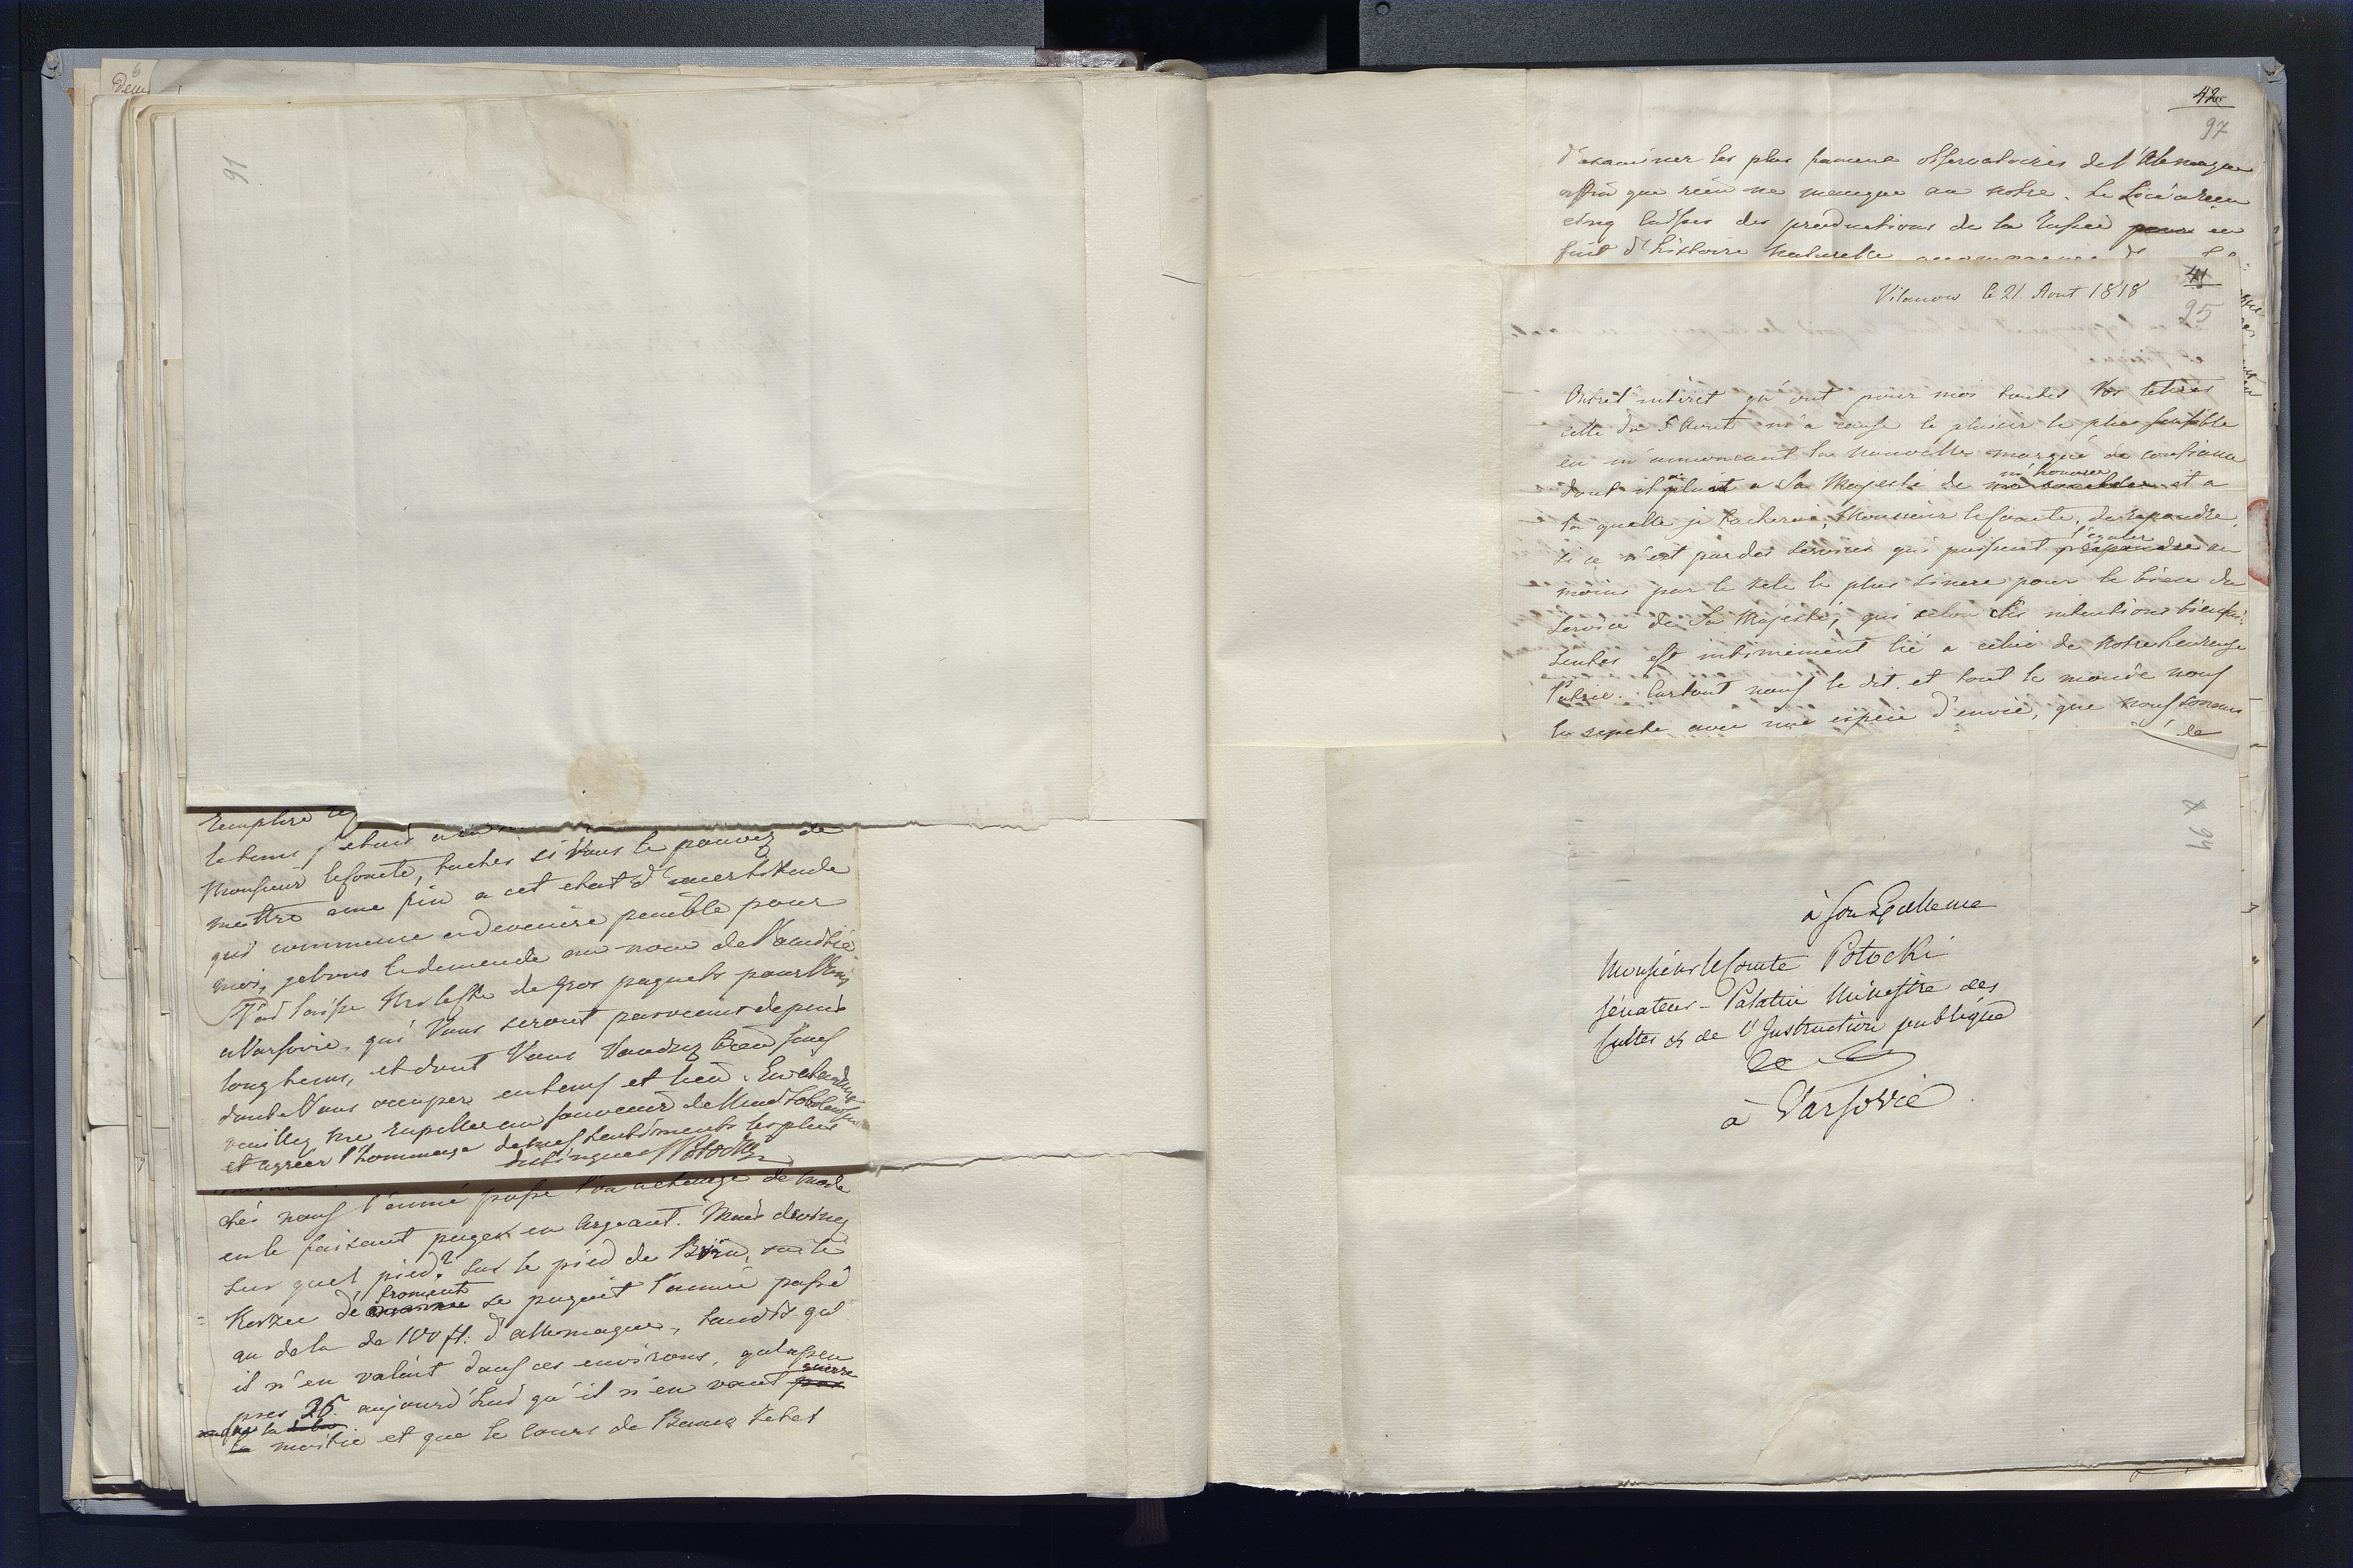 91
Remplire
le tems
Monsieur le Comte, tachés si Vous le pouvez de
mettre une fin a cet etat d'incertitude
qui commence a devenire penible pour
moi, je Vous le demende au nom de l'amitié
J'ai laisse de gros paquets pour Vous
a Varsovie, qui Vous seront parvenus depuis
long tems, et dont Vous Voudrez bien sans
doute Vous occuper en tems et lieu. En attendant
veuillez me rapeller au souvenir de
et agréer l'hommage de mes sentiments les plus
distingues SPotocki
chés nous l'année passe l'on a change de mode
en le faisant payer en Argeant. Mais devinez
sur quel pied? sur le pied de ou le
Korzec de froment se payait l'année passé
au dela de 100 fl. d'allemagne, tandis qu'
il n'en valait dans ces environs, qu'a peu
pres 36. aujourd'hui qu'il n'en vaut guerre
la
la moitie et que le cours de
42
97
d'examiner les plus fameux observatoires de l'Allemagne
affin que rien ne manque au notre. Le Licé a recu
cinq caisses des productions de la Russie pour en
fait d'histoire naturelle
41
95
Vilanow le 21. Aout 1818
Outre l'intéret qu'ont pour moi toutes Vos lettres
celle du 5 Aout m'a cause le plaisir le plus sensible
en m'annoncant la nouvelle marque de confiance
m'honorer
dont il plait a Sa Majesté de et a
la quelle je tacherai, Monsieur le Comte, de repondre,
l'egaler
si ce n'est par des services qui puissent y repondre au
moins par le zele le plus sincre pour le bien du
service de Sa Majesté, qui selon Ses intentions bienfai-
santes est intimément lié a celui de notre heureuse
Patrie. Partout nous le dit et tout le monde nous
le repete avec une espece d'envie, que nous sommes
de
94
à Son Excellence
Monsieur le Comte Potocki
Sénateur - Palatin Ministre des
Cultes & de l'Instruction publique
&c
à Varsovie